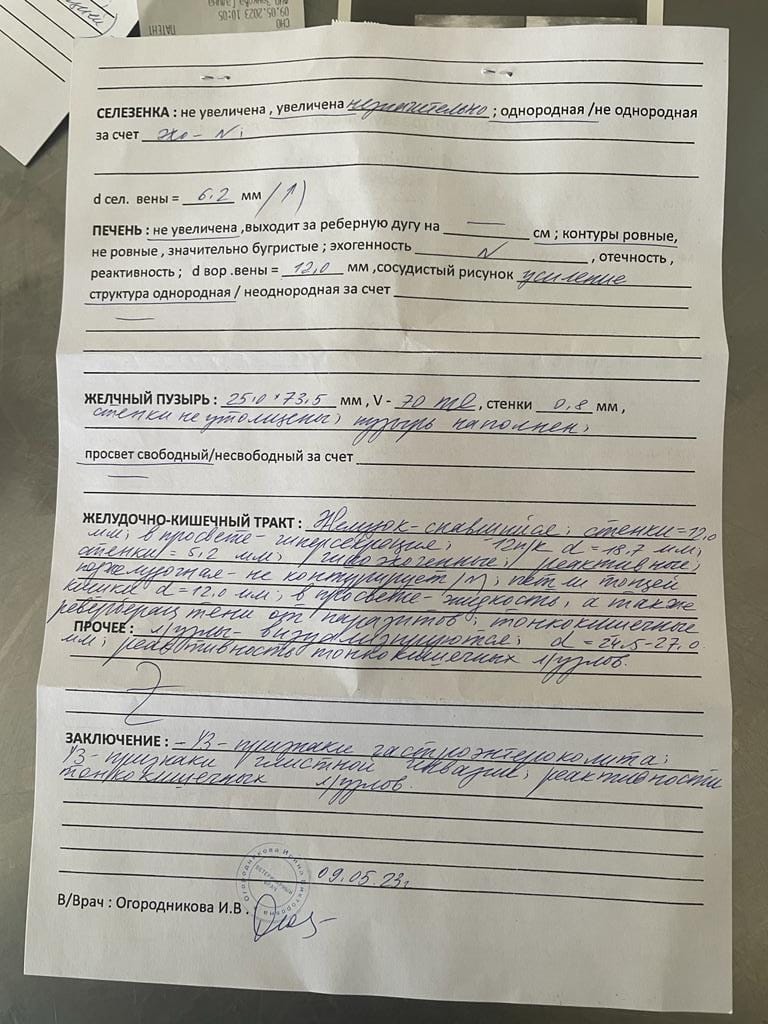 09.05.2023 10:05
ПАТЕНТ
СЕЛЕЗЕНКА : не увеличена , увеличена незначительно ; однородная /не однородная
за счет эхо - N;
d сел. вены = 6.2 мм (↑)
ПЕЧЕНЬ : не увеличена ,выходит за реберную дугу на — см ; контуры ровные,
не ровные , значительно бугристые ; эхогенность N , отечность ,
реактивность ; d вор .вены = 12,0 мм ,сосудистый рисунок усиление
структура однородная / неоднородная за счет
ЖЕЛЧНЫЙ ПУЗЫРЬ : 25,0 × 73,5 мм , V - 70 ml , стенки 0,8 мм ,
стенки не утолщены; пузырь наполнен;
просвет свободный/несвободный за счет
ЖЕЛУДОЧНО-КИШЕЧНЫЙ ТРАКТ : Желудок - спавшийся; стенки = 12,0
мм; в просвете - гиперсекреция; - 12п/к d = 18,7 мм;
стенки = 5,2 мм; гипоэхогенные; реактивные;
поджелудочная - не контурирует (N); петли тощей
кишки d = 12,0 мм; в просвете - жидкость, а также
реверберац тени от паразитов; тонкокишечные
ПРОЧЕЕ : л/узлы - визуализируются; d = 24,5-27,0
мм; реактивность тонкокишечных л/узлов.
ЗАКЛЮЧЕНИЕ : - УЗ - признаки гастроэнтероколита;
УЗ - признаки глистной инвазии; реактивности
тонкокишечных л/узлов.
09.05.23г
В/Врач : Огородникова И.В .
Огородникова Ирина Викторовна
ВЕТЕРИНАРНЫЙ
ВРАЧ